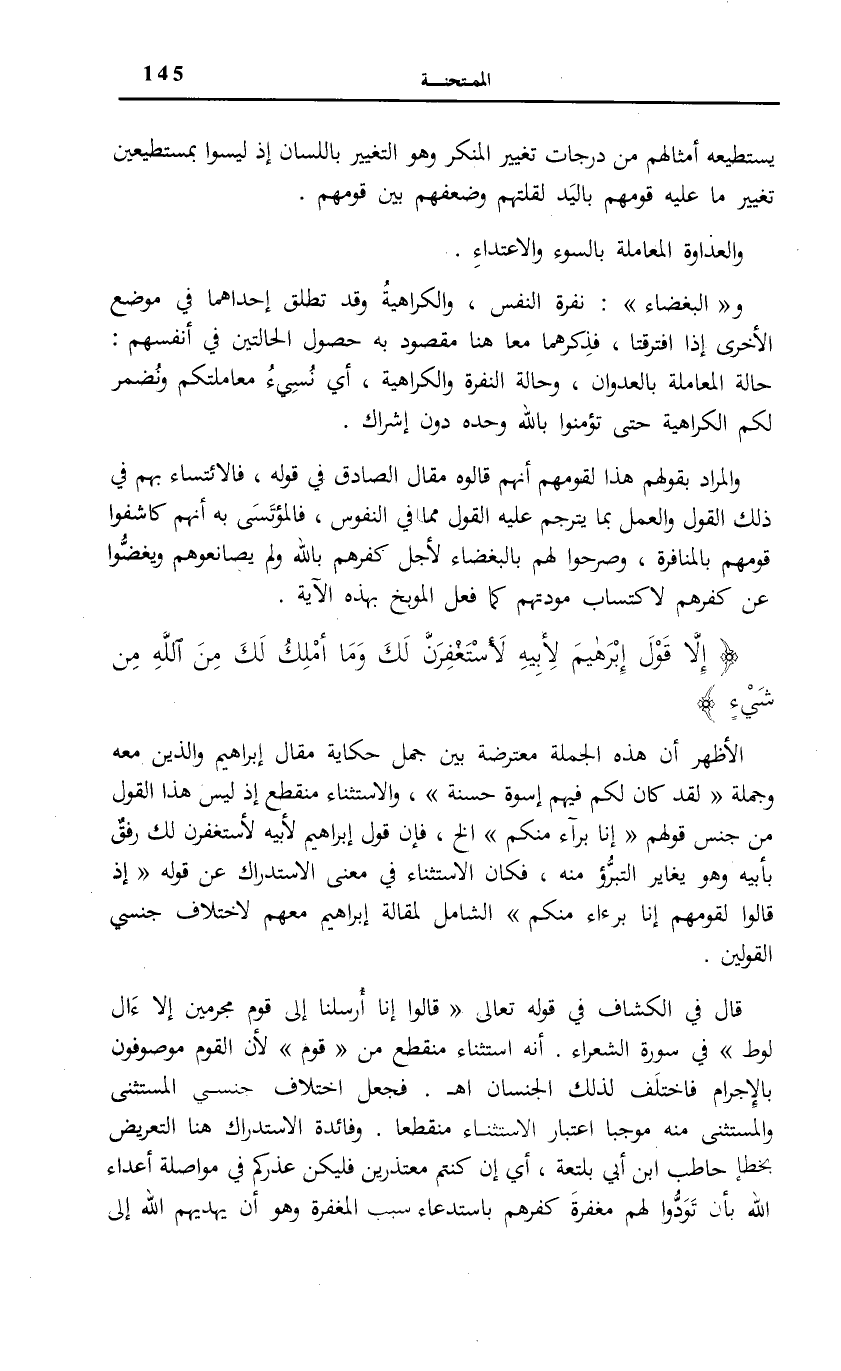 الممتحنــة 145
يستطيعه أمثالهم من درجات تغيير المنكر وهو التغيير باللسان إذ ليسوا بمستطيعين
تغيير ما عليه قومهم باليَد لقلتهم وضعفهم بين قومهم .
والعداوة المعاملة بالسوء والاعتداءِ .
و« البغضاء » : نفرة النفس ، والكراهيةُ وقد تطلق إحداهما في موضع
الأخرى إذا افترقتا ، فذِكرهما معا هنا مقصود به حصول الحالتين في أنفسهم :
حالة المعاملة بالعدوان ، وحالة النفرة والكراهية ، أي نُسِيءُ معاملتكم ونُضمر
لكم الكراهية حتى تؤمنوا بالله وحده دون إشراك .
والمراد بقولهم هذا لقومهم أنهم قالوه مقال الصادق في قوله ، فالائتساء بهم في
ذلك القول والعمل بما يترجم عليه القول مما في النفوس ، فالمؤتَسَى به أنهم كاشفوا
قومهم بالمنافرة ، وصرحوا لهم بالبغضاء لأجل كفرهم بالله ولم يصانعوهم ويغضُّوا
عن كفرهم لاكتساب مودتهم كما فعل الموبخ بهذه الآية .
﴿ إِلَّا قَوْلَ إِبْرَٰهِيمَ لِأَبِيهِ لَأَسْتَغْفِرَنَّ لَكَ وَمَا أَمْلِكُ لَكَ مِنَ ٱللَّهِ مِن
شَيْءٍ ﴾
الأظهر أن هذه الجملة معترضة بين جمل حكاية مقال إبراهيم والذين معه
وجملة « لقد كان لكم فيهم إسوة حسنة » ، والاستثناء منقطع إذ ليس هذا القول
من جنس قولهم « إنا برآء منكم » الخ ، فإن قول إبراهيم لأبيه لأستغفرن لك رفقٌ
بأبيه وهو يغاير التبرُّؤ منه ، فكان الاستثناء في معنى الاستدراك عن قوله « إذ
قالوا لقومهم إنا برءاء منكم » الشامل لمقالة إبراهيم معهم لاختلاف جنسي
القولين .
قال في الكشاف في قوله تعالى « قالوا إنا أُرسلنا إلى قوم مجرمين إلا ءَال
لوط » في سورة الشعراء . أنه استثناء منقطع من « قوم » لأن القوم موصوفون
بالإِجرام فاختلَف لذلك الجنسان اهـ . فجعل اختلاف جنسي المستثنى
والمستثنى منه موجبا اعتبار الاستثناء منقطعا . وفائدة الاستدراك هنا التعريض
بخطإ حاطب ابن أبي بلتعة ، أي إن كنتم معتذرين فليكن عذركم في مواصلة أعداء
الله بأن تَوَدُّوا لهم مغفرةَ كفرهم باستدعاء سبب المغفرة وهو أن يهديهم الله إلى